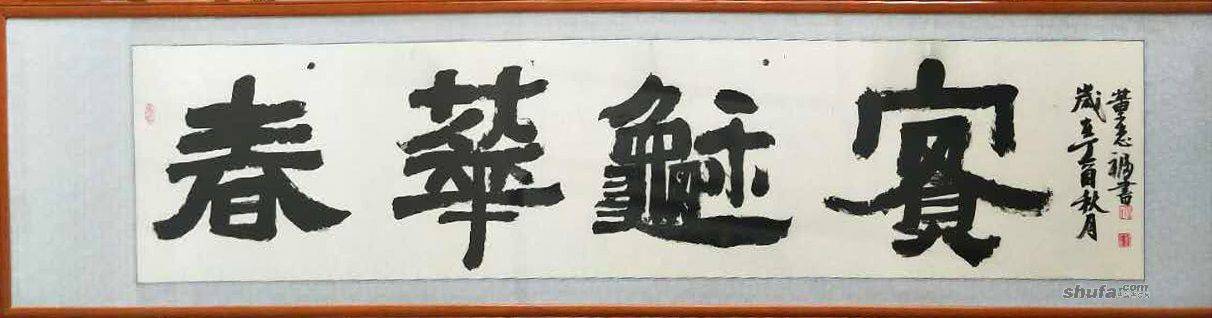 春華龝實
歲在丁酉秋月
黄志福書
shufa.com